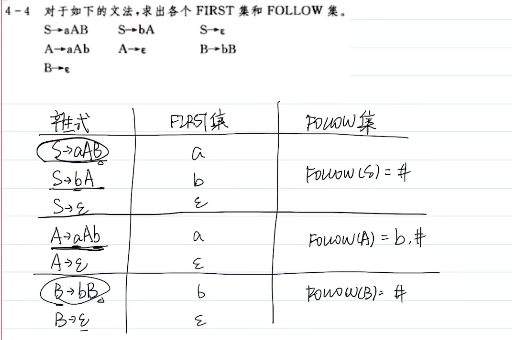 4-4 对于如下的文法,求出各个 FIRST 集和 FOLLOW 集。
S→aAB S→bA S→ε
A→aAb A→ε B→bB
B→ε
产生式 FIRST集 FOLLOW集
S→aAB a
S→bA b FOLLOW(S) = #
S→ε ε
A→aAb a FOLLOW(A) = b,#
A→ε ε
B→bB b FOLLOW(B) = #
B→ε ε